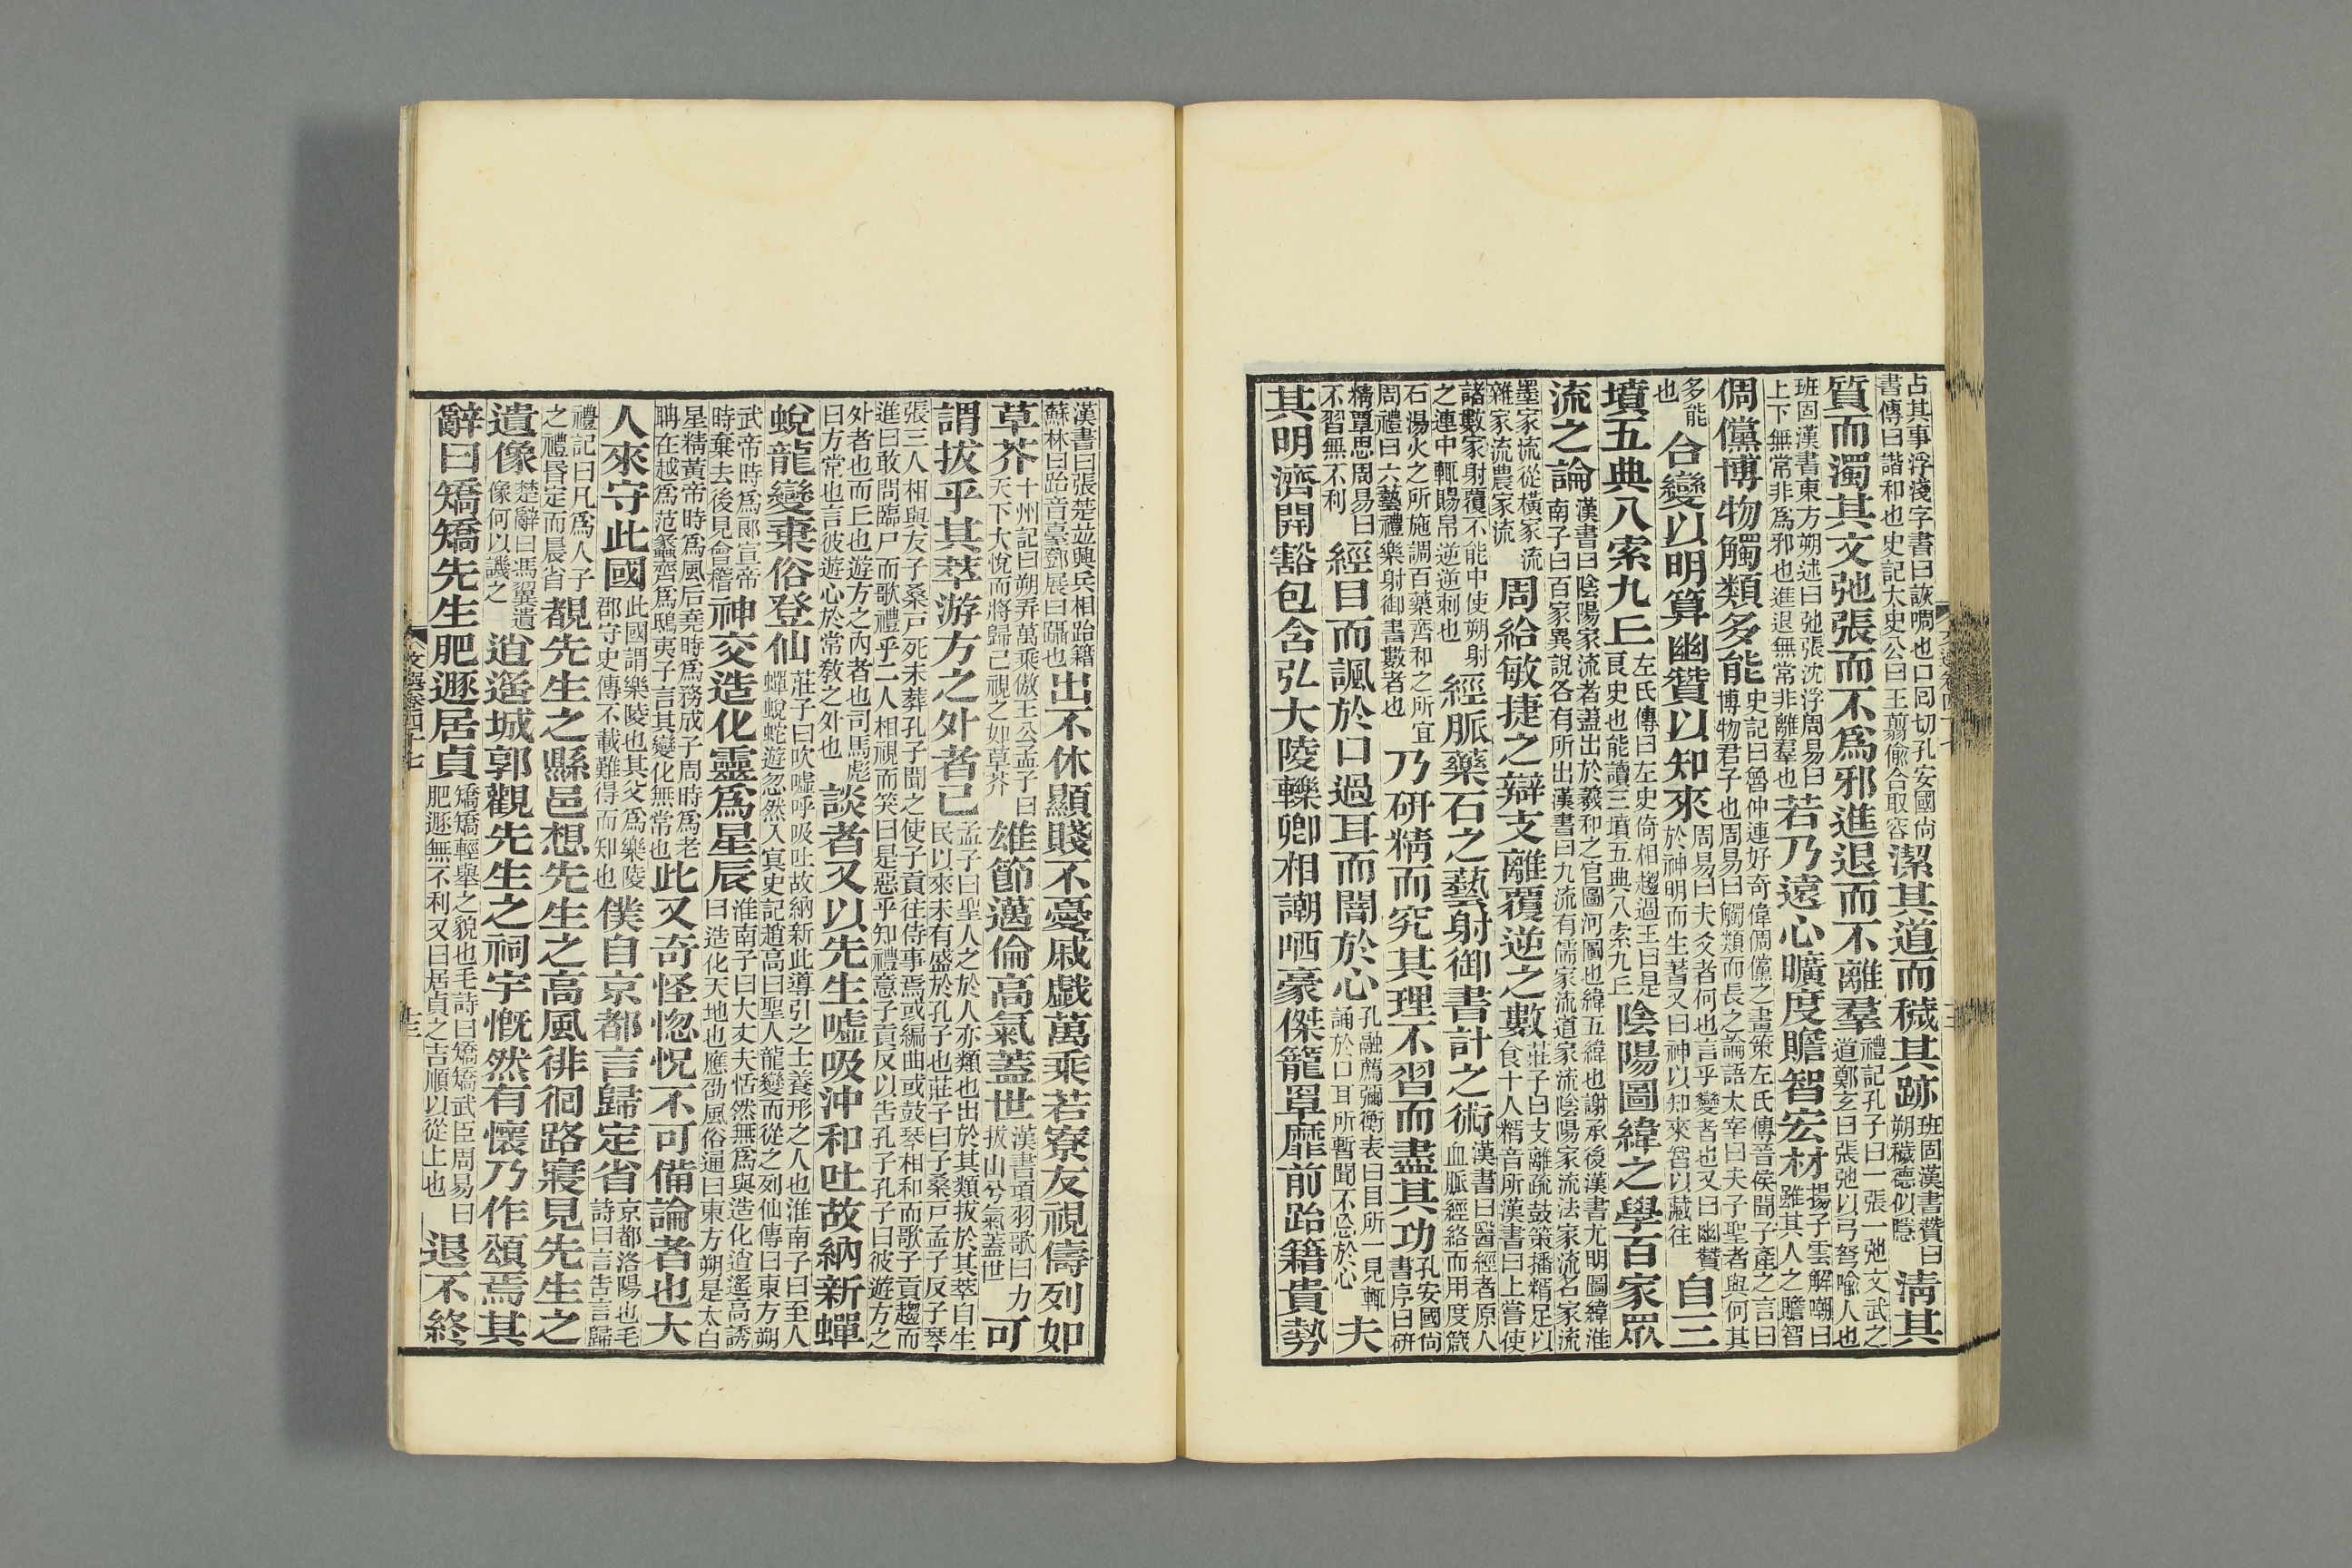 占其事浮淺字書曰詼啁也口囘切孔安國尚書傳曰諧和也史記太史公曰王翦偷合取容潔其道而穢其跡班固漢書贊曰朔穢德似隱清其
質而濁其文弛張而不爲邪進退而不離羣禮記孔子曰一張一弛文武之道鄭玄曰張弛以弓弩喻人也
班固漢書東方朔述曰弛張沈浮周易曰上下無常非爲邪也進退無常非離羣也若乃遠心曠度贍智宏材揚子雲解嘲曰雖其人之贍智
倜儻博物觸類多能史記曰魯仲連好奇偉倜儻之畫策左氏傳晉侯聞子產之言曰博物君子也周易曰觸類而長之論語太宰曰夫子聖者與何其
多能也合變以明算幽贊以知來周易曰夫爻者何也言乎變者也又曰幽贊於神明而生蓍又曰神以知來智以藏往自三
墳五典八索九丘左氏傳曰左史倚相趨過王曰是良史也能讀三墳五典八索九丘陰陽圖緯之學百家眾
流之論漢書曰陰陽家流者蓋出於羲和之官圖河圖也緯五緯也謝承後漢書尤明圖緯淮南子曰百家異說各有所出漢書曰九流有儒家流道家流陰陽家流法家流名家流
墨家流從橫家流雜家流農家流周給敏捷之辯支離覆逆之數莊子曰支離疏鼓策播精足以食十人精音所漢書曰上嘗使
諸數家射覆不能中使朔射之連中輒賜帛逆逆刺也經脈藥石之藝射御書計之術漢書曰醫經者原人血脈經絡而用度箴
石湯火之所施調百藥齊和之所宜周禮曰六藝禮樂射御書數者也乃研精而究其理不習而盡其功孔安國尚書序曰研
精覃思周易曰不習無不利經目而諷於口過耳而闇於心孔融薦彌衡表曰目所一見輒誦於口耳所暫聞不忘於心夫
其明濟開豁包含弘大陵轢卿相謿哂豪傑籠罩靡前跆籍貴勢
漢書曰張楚並興兵相跆籍蘇林曰跆音臺鄧展曰躡也出不休顯賤不憂戚戲萬乘若寮友視儔列如
草芥十州記曰朔弄萬乘傲王公孟子曰天下大悅而將歸己視之如草芥雄節邁倫高氣蓋世漢書項羽歌曰力拔山兮氣蓋世可
謂拔乎其萃游方之外者已孟子曰聖人之於人亦類也出於其類拔於其萃自生民以來未有盛於孔子也莊子曰子桑戶孟子反子琴
張三人相與友子桑戶死未葬孔子聞之使子貢往侍事焉或編曲或鼓琴相和而歌子貢趨而進曰敢問臨尸而歌禮乎二人相視而笑曰是惡乎知禮意子貢反以告孔子孔子曰彼遊方之
外者也而丘也遊方之內者也司馬彪曰方常也言彼遊心於常敎之外也談者又以先生噓吸沖和吐故納新蟬
蛻龍變棄俗登仙莊子曰吹噓呼吸吐故納新此導引之士養形之人也淮南子曰至人蟬蛻蛇遊忽然入冥史記趙高曰聖人龍變而從之列仙傳曰東方朔
武帝時爲郞宣帝時棄去後見會稽神交造化靈爲星辰淮南子曰大丈夫恬然無爲與造化逍遙高誘曰造化天地也應劭風俗通曰東方朔是太白
星精黃帝時爲風后堯時爲務成子周時爲老聃在越爲范蠡齊爲鴟夷子言其變化無常也此又奇怪惚怳不可備論者也大
人來守此國此國謂樂陵也其父爲樂陵郡守史傳不載難得而知也僕自京都言歸定省京都洛陽也毛詩曰言告言歸
禮記曰凡爲人子之禮昏定而晨省覩先生之縣邑想先生之高風徘徊路寢見先生之
遺像楚辭曰馮翼遺像何以識之逍遙城郭觀先生之祠宇慨然有懷乃作頌焉其
辭曰矯矯先生肥遯居貞矯矯輕舉之貌也毛詩曰矯矯武臣周易曰肥遯無不利又曰居貞之吉順以從上也退不終
文選卷四十七
十三